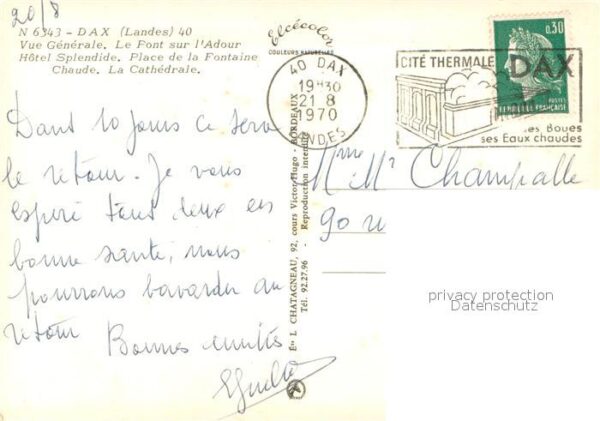 20/8
N 6343 - DAX (Landes) 40
Vue Générale. Le Pont sur l'Adour
Hôtel Splendide. Place de la Fontaine
Chaude. La Cathédrale.
Elcécolor
COULEURS NATURELLES
40 DAX
19H30
21 8
1970
LANDES
CITÉ THERMALE DAX
ses Boues
ses Eaux chaudes
0,30
POSTES
REPUBLIQUE FRANÇAISE
Dans 10 jours ce sera
le retour. Je vous
espère tous deux en
bonne santé, nous
pourrons bavarder au
retour Bonnes amitiés
Mme Mr Champalle
90
Éts L. CHATAGNEAU, 92, cours Victor-Hugo - BORDEAUX
Tél. 92.27.96 - Reproduction interdite
privacy protection
Datenschutz